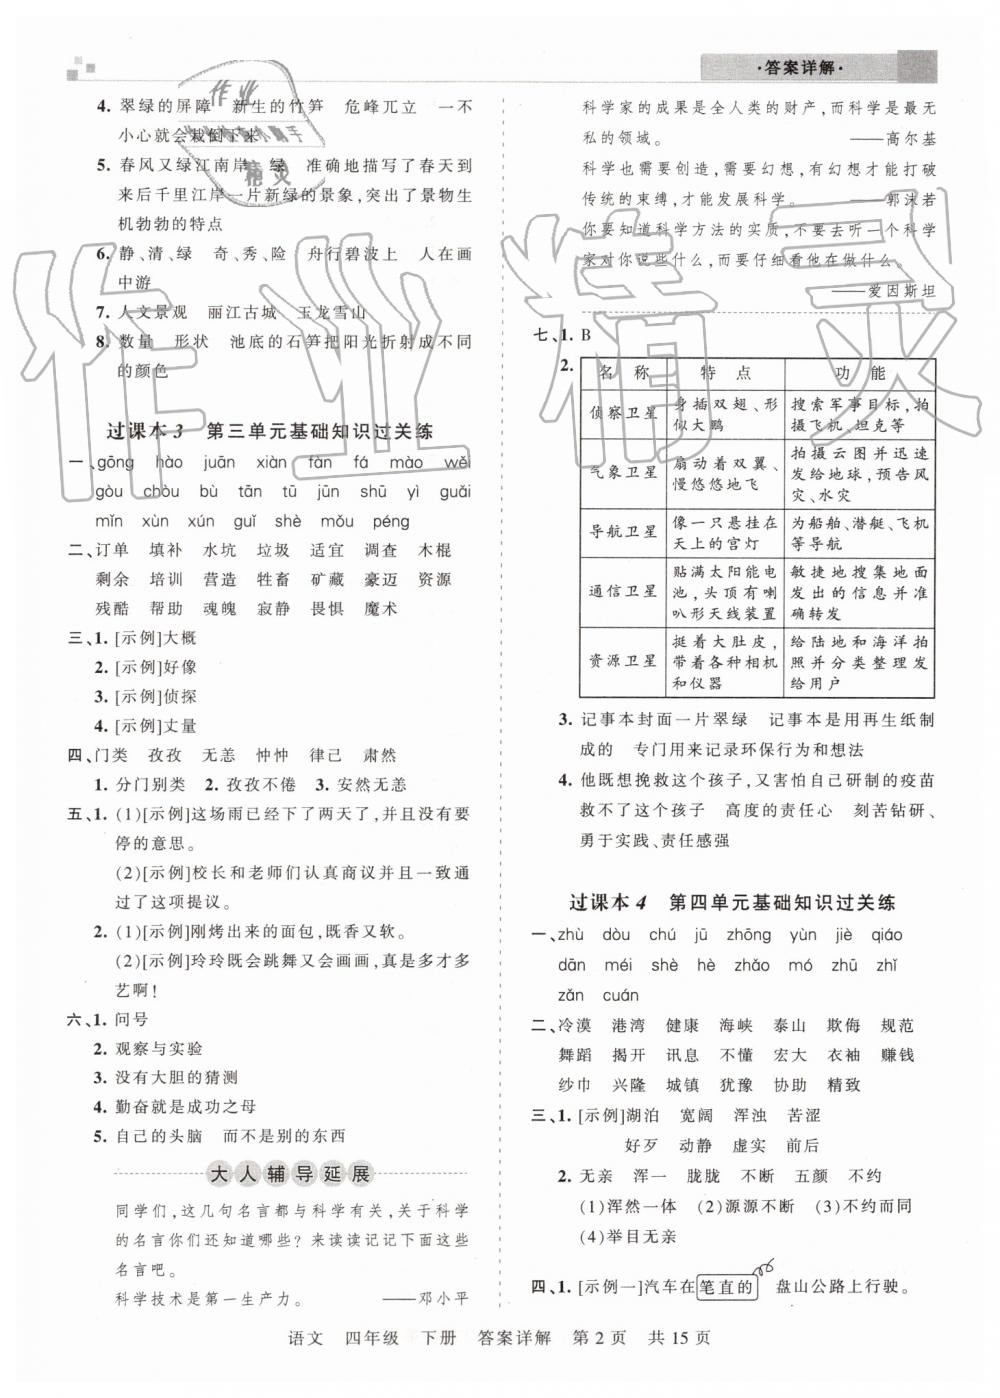 ·答案详解·
4. 翠绿的屏障　新生的竹笋　危峰兀立　一不
小心就会栽倒下来
5. 春风又绿江南岸　绿　准确地描写了春天到
来后千里江岸一片新绿的景象,突出了景物生
机勃勃的特点
6. 静、清、绿　奇、秀、险　舟行碧波上　人在画
中游
7. 人文景观　丽江古城　玉龙雪山
8. 数量　形状　池底的石笋把阳光折射成不同
的颜色
过课本 3　第三单元基础知识过关练
一、gōng hào juān xiàn fàn fá mào wěi
gòu chòu bù tān tū jūn shū yì guǎi
mǐn xùn xún guǐ shè mǒu péng
二、订单　填补　水坑　垃圾　适宜　调查　木棍
剩余　培训　营造　牲畜　矿藏　豪迈　资源
残酷　帮助　魂魄　寂静　畏惧　魔术
三、1. [示例]大概
2. [示例]好像
3. [示例]侦探
4. [示例]丈量
四、门类　孜孜　无恙　忡忡　律己　肃然
1. 分门别类　2. 孜孜不倦　3. 安然无恙
五、1. (1)[示例]这场雨已经下了两天了,并没有要
停的意思。
(2)[示例]校长和老师们认真商议并一致通
过了这项提议。
2. (1)[示例]刚烤出来的面包,既香又软。
(2)[示例]玲玲既会跳舞又会画画,真是多才多
艺啊!
六、1. 问号
2. 观察与实验
3. 没有大胆的猜测
4. 勤奋就是成功之母
5. 自己的头脑　而不是别的东西
大人辅导延展
同学们,这几句名言都与科学有关,关于科学
的名言你们还知道哪些?来读读记记下面这些
名言吧。
科学技术是第一生产力。　——邓小平
科学家的成果是全人类的财产,而科学是最无
私的领域。　——高尔基
科学也需要创造,需要幻想,有幻想才能打破
传统的束缚,才能发展科学。　——郭沫若
你要知道科学方法的实质,不要去听一个科学
家对你说些什么,而要仔细看他在做什么。
——爱因斯坦
七、1. B
2.
名称　特点　功能
侦察卫星　身插双翅、形似大鹏　搜索军事目标,拍摄飞机、坦克等
气象卫星　扇动着双翼、慢悠悠地飞　拍摄云图并迅速发给地球,预告风灾、水灾
导航卫星　像一只悬挂在天上的宫灯　为船舶、潜艇、飞机等导航
通信卫星　贴满太阳能电池,头顶有喇叭形天线装置　敏捷地搜集地面发出的信息并准确转发
资源卫星　挺着大肚皮,带着各种相机和仪器　给陆地和海洋拍照并分类整理发给用户
3. 记事本封面一片翠绿　记事本是用再生纸制
成的　专门用来记录环保行为和想法
4. 他既想挽救这个孩子,又害怕自己研制的疫苗
救不了这个孩子　高度的责任心　刻苦钻研、
勇于实践、责任感强
过课本 4　第四单元基础知识过关练
一、zhù dòu chú jū zhōng yùn jiè qiáo
dān méi shè hè zhǎo mó zhū zhǐ
zǎn cuán
二、冷漠　港湾　健康　海峡　泰山　欺侮　规范
舞蹈　揭开　讯息　不懂　宏大　衣袖　赚钱
纱巾　兴隆　城镇　犹豫　协助　精致
三、1. [示例]湖泊　宽阔　浑浊　苦涩
好歹　动静　虚实　前后
2. 无亲　浑一　胧胧　不断　五颜　不约
(1)浑然一体　(2)源源不断　(3)不约而同
(4)举目无亲
四、1. [示例一]汽车在笔直的　盘山公路上行驶。
语文　四年级　下册　答案详解　第 2 页　共 15 页
作业
精灵
作业精灵